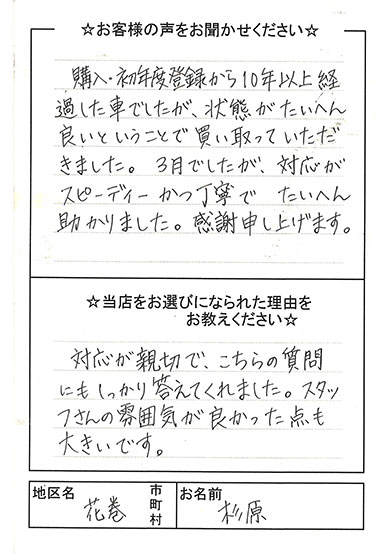 ☆お客様の声をお聞かせください☆
購入・初年度登録から10年以上経
過した車でしたが、状態がたいへん
良いということで買い取っていただ
きました。3月でしたが、対応が
スピーディーかつ丁寧で たいへん
助かりました。感謝申し上げます。
☆当店をお選びになられた理由を
お教えください☆
対応が親切で、こちらの質問
にもしっかり答えてくれました。スタッ
フさんの雰囲気が良かった点も
大きいです。
地区名 花巻 市町村 お名前 杉原